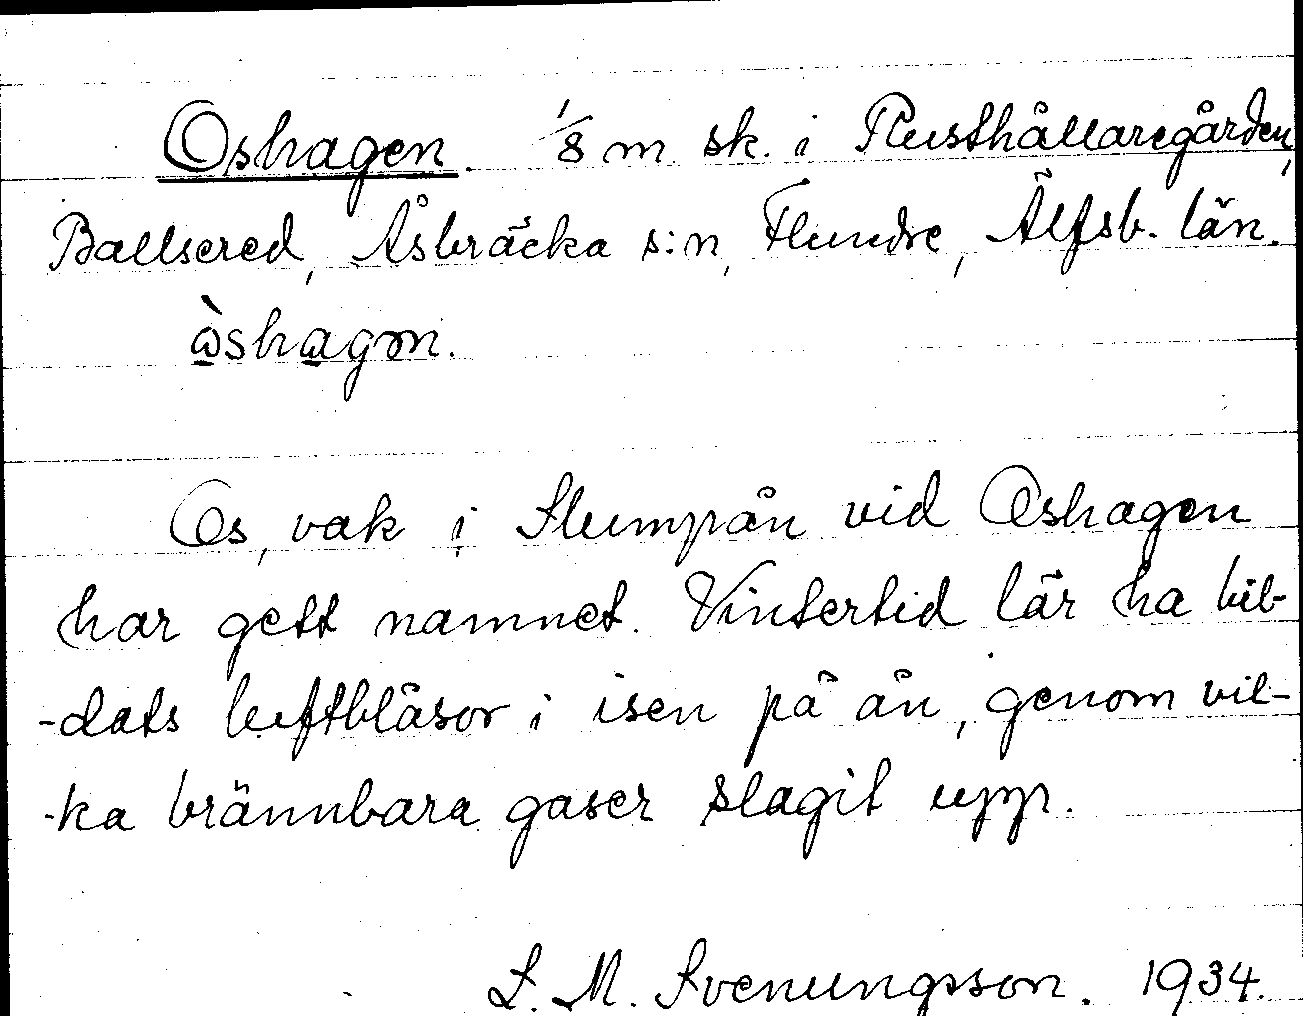 Oshagen. 1/8 m sk. i Rusthållaregården,
Ballsered, Åsbräcka s:n, Flundre, Älfsb. län.
ὼshagən.
Os, vak i Slumpån vid Oshagen
har gett namnet. Vintertid lär ha bil-
-dats luftblåsor i isen på ån, genom vil-
-ka brännbara gaser slagit upp.
L. M. Svenungsson. 1934.